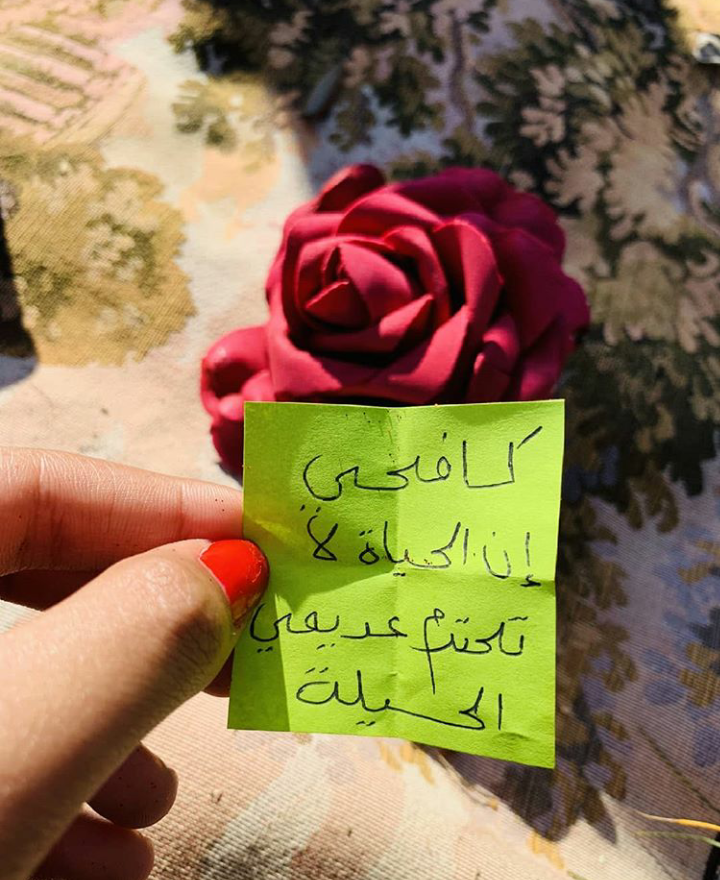 كافحي
إن الحياة لا
تحترم عديمي
الحيلة